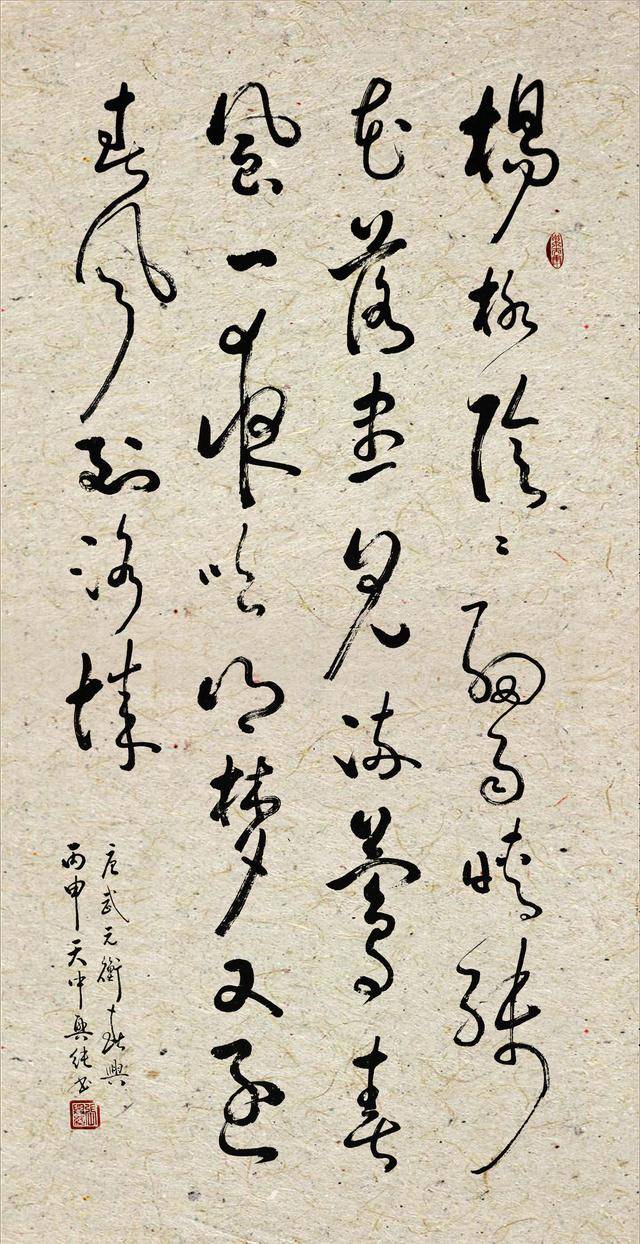 楊柳陰〻細雨晴殘
花落盡見流鶯春
風一夜吹鄉夢又逐
春風到洛城
唐武元衡春興
丙申天中興純書